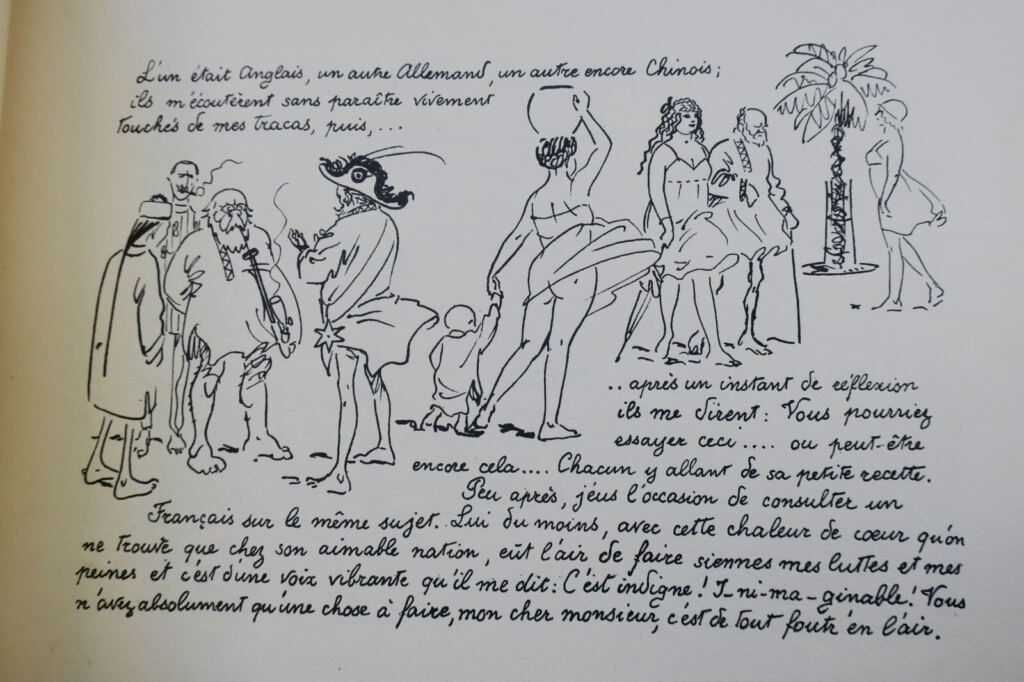 L'un était Anglais, un autre Allemand, un autre encore Chinois;
ils m'écoutèrent sans paraître vivement
touchés de mes tracas, puis, ...
.. après un instant de réflexion
ils me dirent: Vous pourriez
essayer ceci .... ou peut-être
encore cela.... Chacun y allant de sa petite recette.
Peu après, j'eus l'occasion de consulter un
Français sur le même sujet. Lui du moins, avec cette chaleur de cœur qu'on
ne trouve que chez son aimable nation, eût l'air de faire siennes mes luttes et mes
peines et c'est d'une voix vibrante qu'il me dit: C'est indigne! I-ni-ma-ginable! Vous
n'avez absolument qu'une chose à faire, mon cher monsieur, c'est de tout foutr' en l'air.